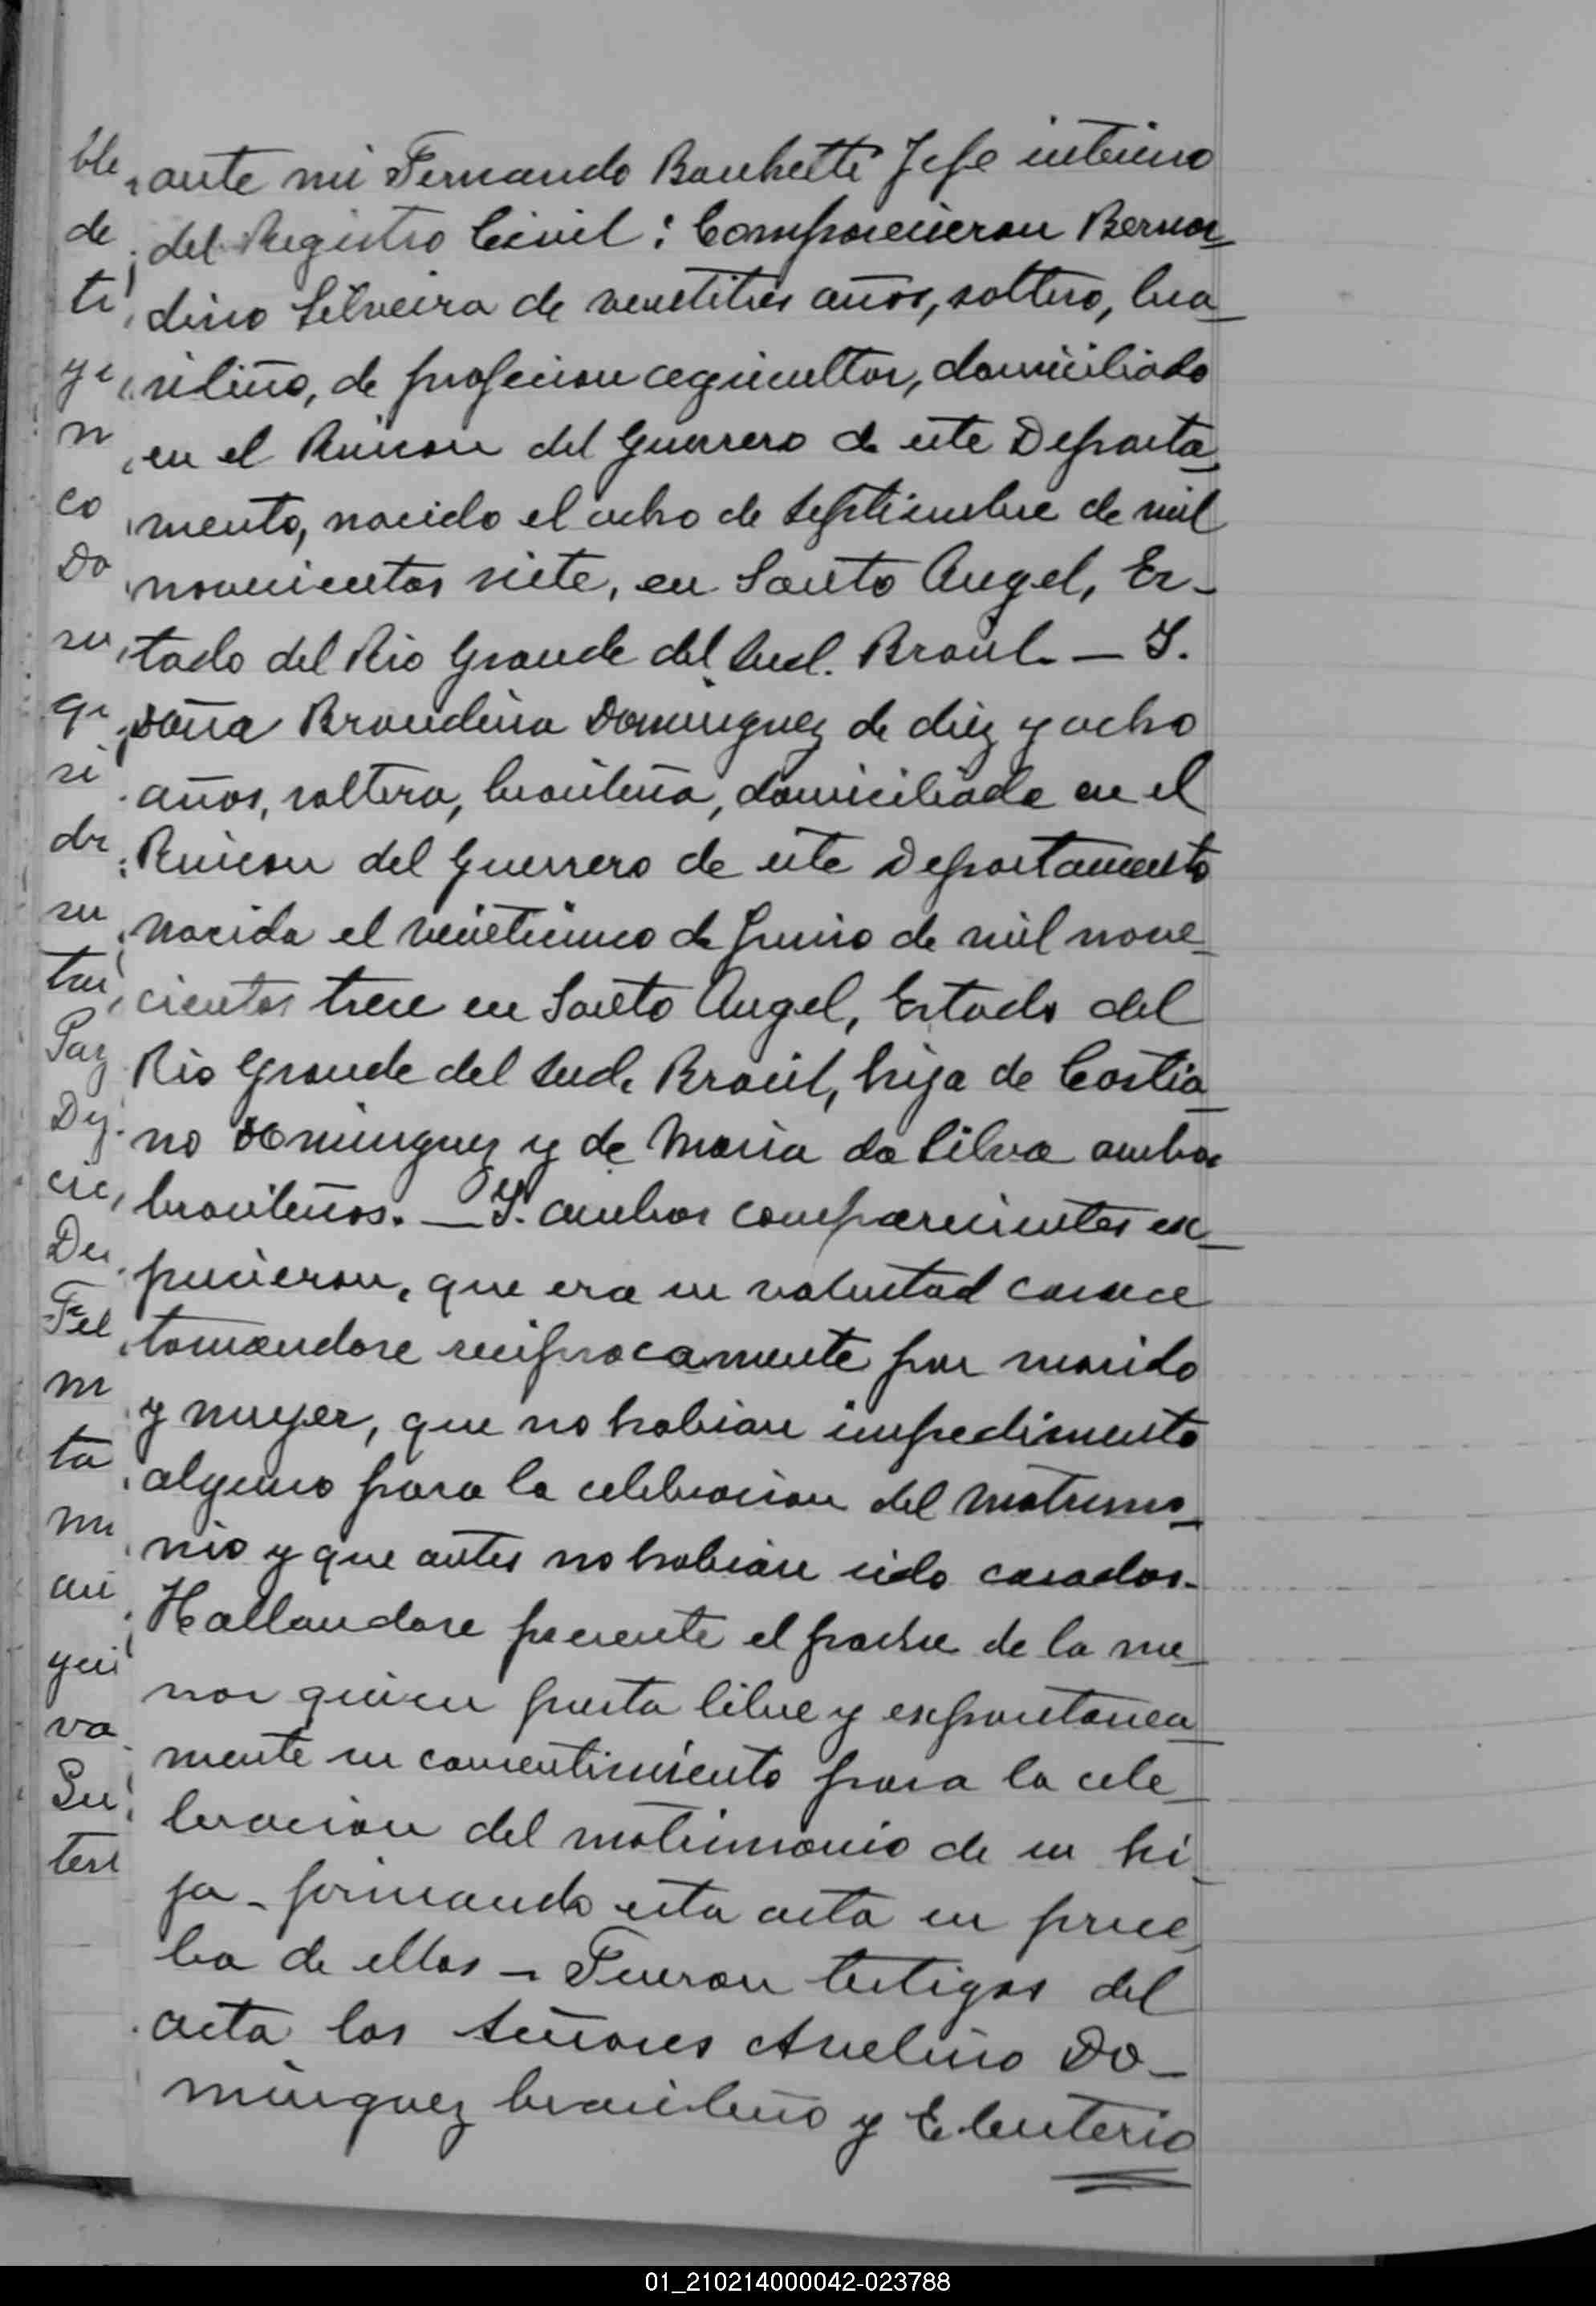 ante mi Fernando Banchetti Jefe interino
del Registro Civil: Comparecieron Bernar_
dino Silveira de veintitres años, soltero, bra_
sileño, de profecion agricultor, domiciliado
en el Rincon del Guerrero de este Departa_
mento, nacido el ocho de Septiembre de mil
novecientos siete, en Santo Angel, Es_
tado del Rio Grande del Sud. Brasil. — Y.
Doña Brandina Dominguez de diez y ocho
años, soltera, brasileña, domiciliada en el
Rincon del Guerrero de este Departamento
nacida el veinticinco de Junio de mil nove_
cientos trece en Santo Angel, Estado del
Rio Grande del Sud. Brasil, hija de Castia_
no Dominguez y de Maria da Silva ambos
brasileños. — Y. ambos comparecientes ex_
pucieron, que era su voluntad casarce
tomandose reciprocamente por marido
y mujer, que no habian impedimento
alguno para la celebracion del matrimo_
nio y que antes no habian sido casados.
Hallandose precente el padre de la me_
nor quien presta libre y expontanea_
mente su consentimiento para la cele_
bracion del matrimonio de su hi_
ja - firmando esta acta en prue_
ba de ellos — Fueron testigos del
acta los Señores Avelino Do_
minguez brasileño y Eleuterio
ble
de
ti
ye
n
co
Do
su
qu
si
de
su
tai
Paz
Dy
cie,
De
Fel
m
ta
mi
an
qui
va
Su
test
01_210214000042-023788